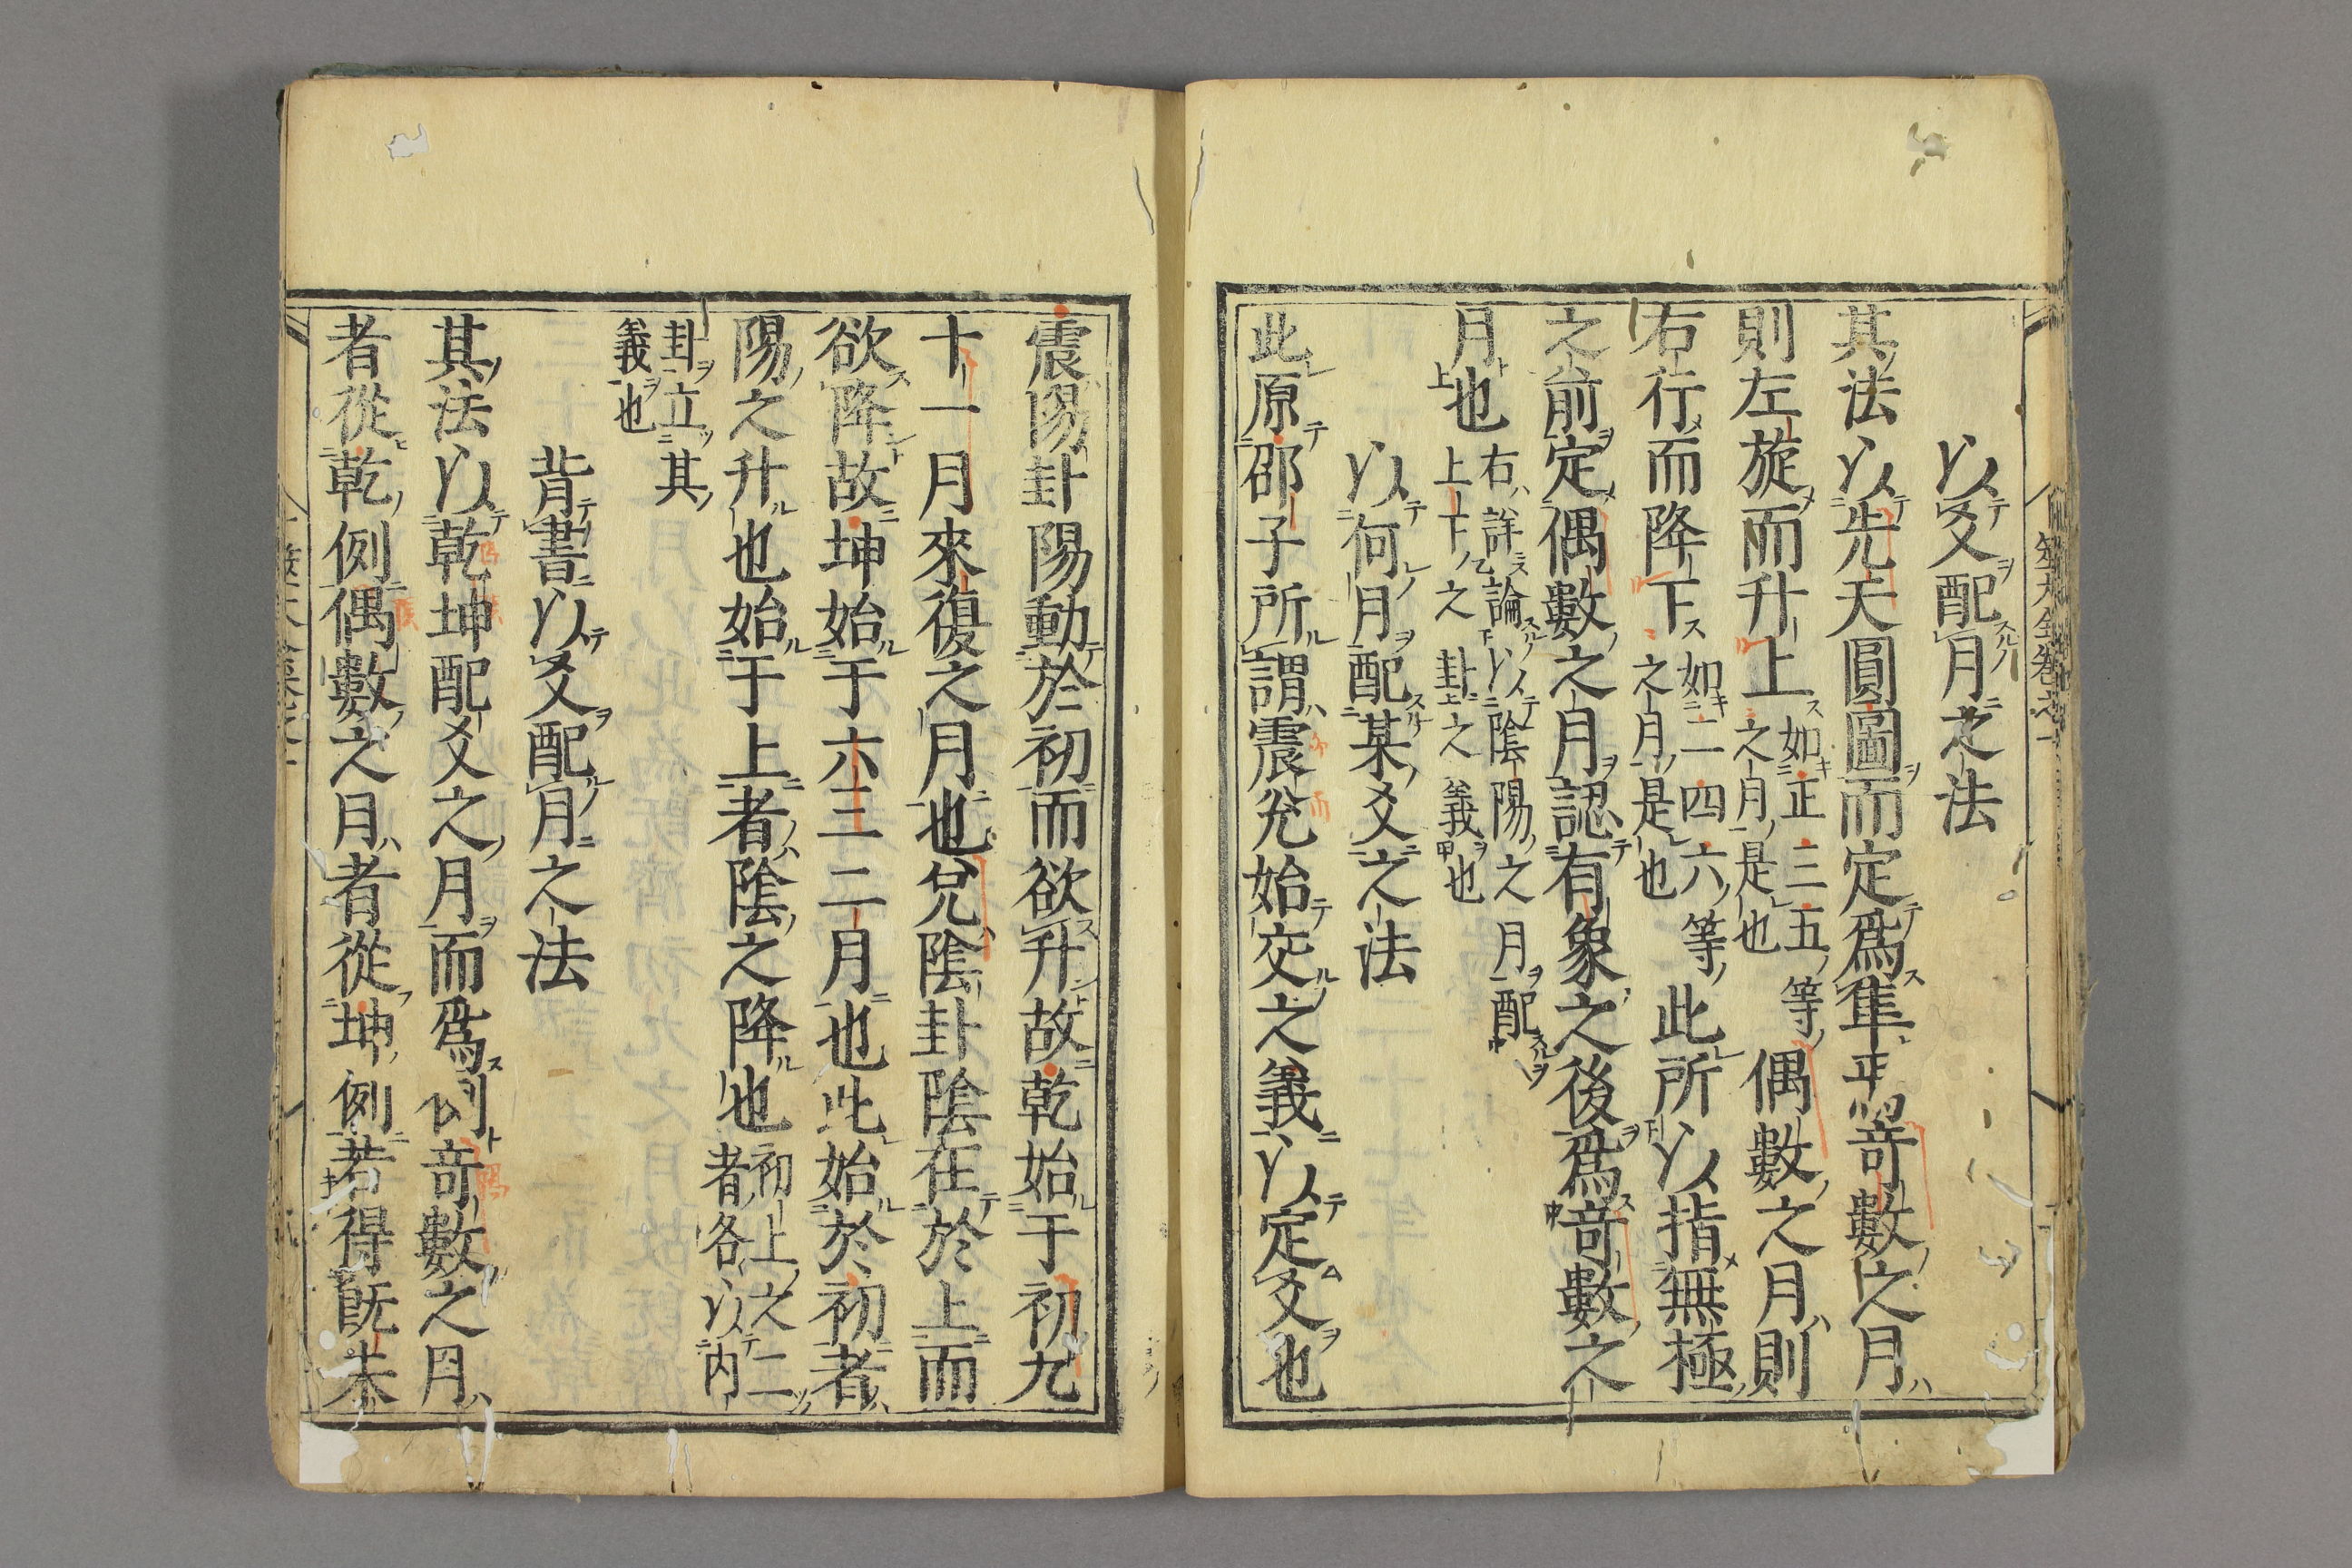 以爻配月之法
其法以先天圓圖而定爲準平常奇數之月
則左旋而升上如正三五等之月是也偶數之月則
右行而降下如二四六等之月是也此所以指無極
之前定偶數之月認有象之後爲奇數之
月也右詳論以陰陽之月配上下之卦之義也
以何月配某爻之法
此原邵子所謂震兌始交之義以定爻也
震陽卦陽動於初而欲升故乾始于初九
十一月來復之月也兌陰卦陰在於上而
欲降故坤始于六三二月也此始於初者
陽之升也始于上者陰之降也初上之二者各以内
卦立其義也
背書以爻配月之法
其法以乾坤配爻之月而爲例奇數之月
者從乾例偶數之月者從坤例若得既未